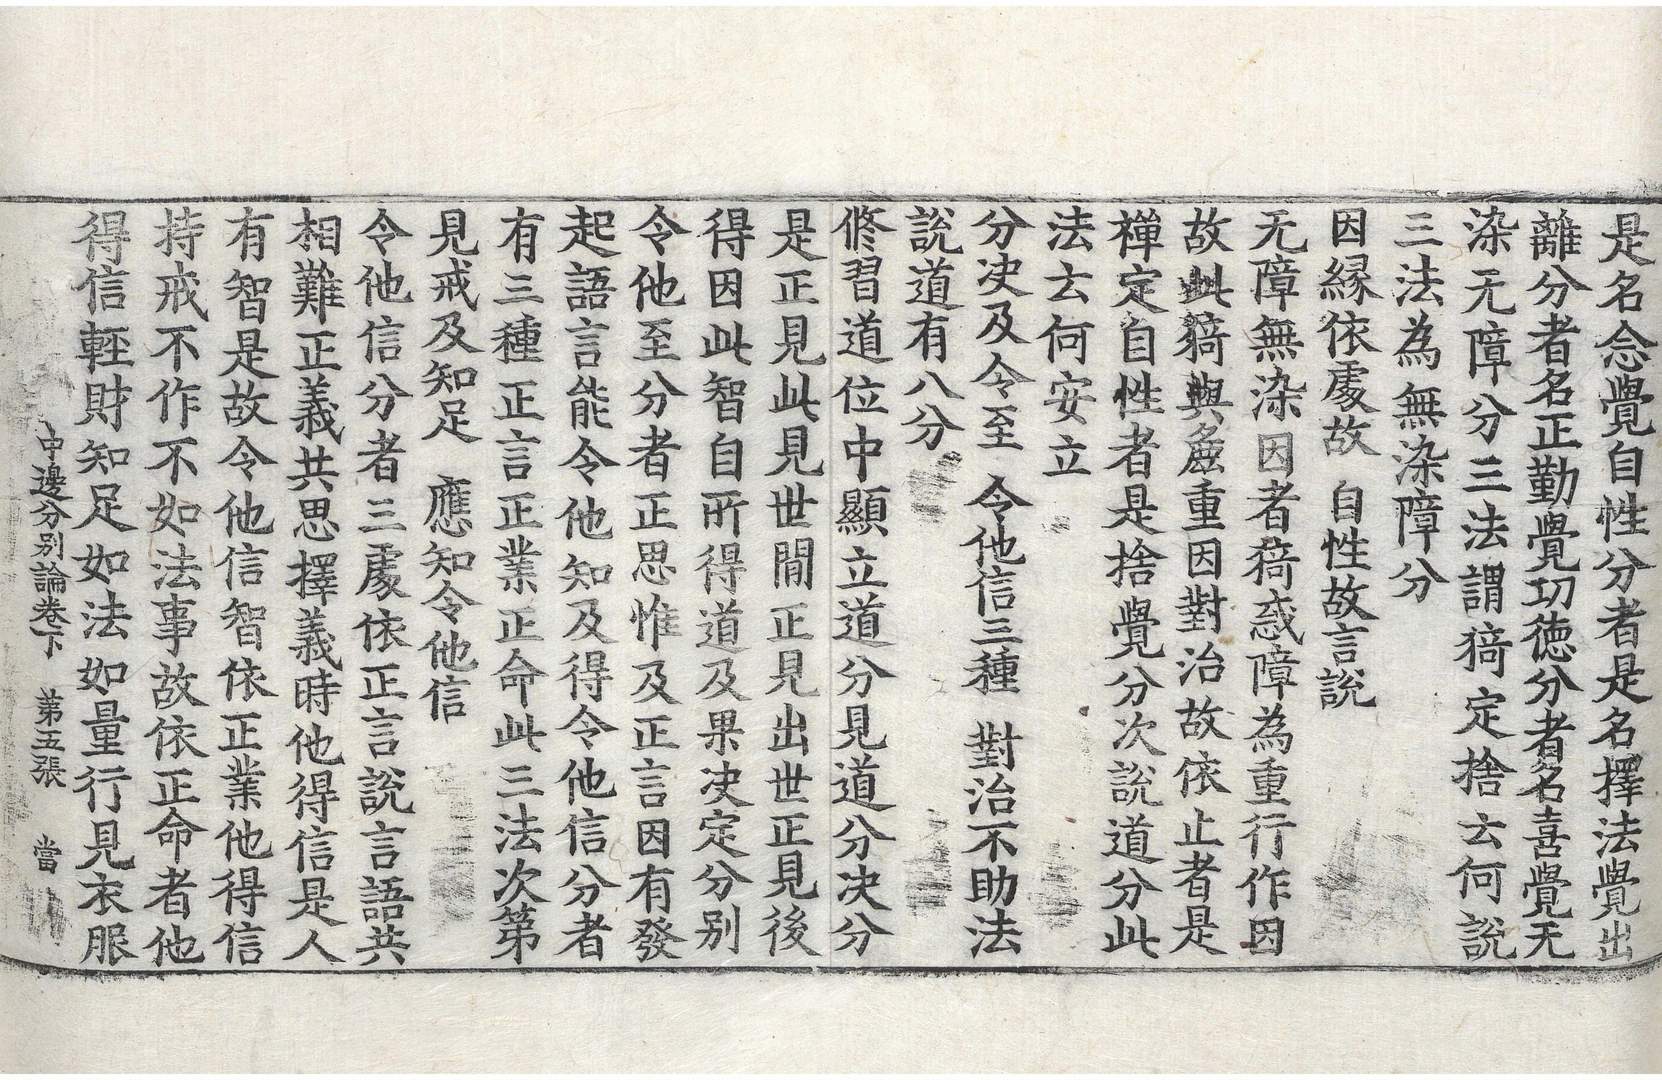 是名念覺自性分者是名擇法覺出
離分者名正勤覺功徳分者名喜覺无
染无障分三法謂猗定捨云何說
三法為無染障分
因縁依處故　自性故言說
无障無染因者猗惑障為重行作因
故此猗與麁重因對治故依止者是
禪定自性者是捨覺分次說道分此
法云何安立
分决及令至　令他信三種　對治不助法
說道有八分
修習道位中顯立道分見道分决分
是正見此見世間正見出世正見後
得因此智自所得道及果决定分别
令他至分者正思惟及正言因有發
起語言能令他知及得令他信分者
有三種正言正業正命此三法次第
見戒及知足　應知令他信
令他信分者三處依正言說言語共
相難正義共思擇義時他得信是人
有智是故令他信智依正業他得信
持戒不作不如法事故依正命者他
得信輕財知足如法如量行見衣服
中邊分别論卷下　第五張　當